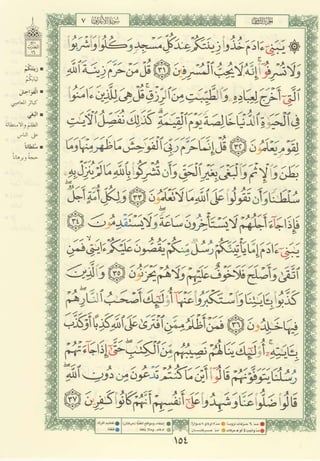 سُورَةُ الأَعْرَافِ ٧
يَٰبَنِىٓ ءَادَمَ خُذُوا۟ زِينَتَكُمْ عِندَ كُلِّ مَسْجِدٍ وَكُلُوا۟ وَٱشْرَبُوا۟
وَلَا تُسْرِفُوٓا۟ إِنَّهُۥ لَا يُحِبُّ ٱلْمُسْرِفِينَ ٣١ قُلْ مَنْ حَرَّمَ زِينَةَ ٱللَّهِ
ٱلَّتِىٓ أَخْرَجَ لِعِبَادِهِۦ وَٱلطَّيِّبَٰتِ مِنَ ٱلرِّزْقِ قُلْ هِىَ لِلَّذِينَ ءَامَنُوا۟
فِى ٱلْحَيَوٰةِ ٱلدُّنْيَا خَالِصَةً يَوْمَ ٱلْقِيَٰمَةِ كَذَٰلِكَ نُفَصِّلُ ٱلْءَايَٰتِ
لِقَوْمٍ يَعْلَمُونَ ٣٢ قُلْ إِنَّمَا حَرَّمَ رَبِّىَ ٱلْفَوَٰحِشَ مَا ظَهَرَ مِنْهَا وَمَا
بَطَنَ وَٱلْإِثْمَ وَٱلْبَغْىَ بِغَيْرِ ٱلْحَقِّ وَأَن تُشْرِكُوا۟ بِٱللَّهِ مَا لَمْ يُنَزِّلْ بِهِۦ
سُلْطَٰنًا وَأَن تَقُولُوا۟ عَلَى ٱللَّهِ مَا لَا تَعْلَمُونَ ٣٣ وَلِكُلِّ أُمَّةٍ أَجَلٌ
فَإِذَا جَآءَ أَجَلُهُمْ لَا يَسْتَأْخِرُونَ سَاعَةً وَلَا يَسْتَقْدِمُونَ ٣٤
يَٰبَنِىٓ ءَادَمَ إِمَّا يَأْتِيَنَّكُمْ رُسُلٌ مِّنكُمْ يَقُصُّونَ عَلَيْكُمْ ءَايَٰتِى فَمَنِ
ٱتَّقَىٰ وَأَصْلَحَ فَلَا خَوْفٌ عَلَيْهِمْ وَلَا هُمْ يَحْزَنُونَ ٣٥ وَٱلَّذِينَ
كَذَّبُوا۟ بِـَٔايَٰتِنَا وَٱسْتَكْبَرُوا۟ عَنْهَآ أُو۟لَٰٓئِكَ أَصْحَٰبُ ٱلنَّارِ هُمْ
فِيهَا خَٰلِدُونَ ٣٦ فَمَنْ أَظْلَمُ مِمَّنِ ٱفْتَرَىٰ عَلَى ٱللَّهِ كَذِبًا أَوْ كَذَّبَ
بِـَٔايَٰتِهِۦٓ أُو۟لَٰٓئِكَ يَنَالُهُمْ نَصِيبُهُم مِّنَ ٱلْكِتَٰبِ حَتَّىٰٓ إِذَا جَآءَتْهُمْ
رُسُلُنَا يَتَوَفَّوْنَهُمْ قَالُوٓا۟ أَيْنَ مَا كُنتُمْ تَدْعُونَ مِن دُونِ ٱللَّهِ
قَالُوا۟ ضَلُّوا۟ عَنَّا وَشَهِدُوا۟ عَلَىٰٓ أَنفُسِهِمْ أَنَّهُمْ كَانُوا۟ كَٰفِرِينَ ٣٧
١٥٤